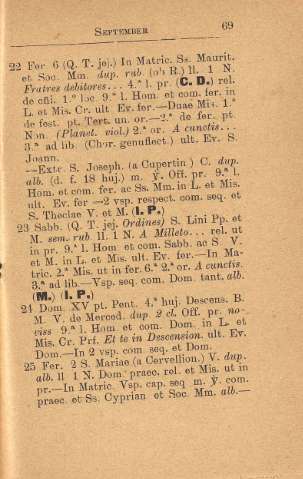 SEPTEMBER 69
22 Fer. 6 (Q. T. jej.) In Matric. Ss. Maurit.
et Soc. Mm. dup. rub. (ob R.) ll. 1 N.
Fratres debitores... 4.ª l. pr. (C. D.) rel.
de offi. 1.º loc. 9.ª l. Hom. et com. fer. in
L. et Mis. Cr. ult. Ev. fer.—Duae Mis. 1.ª
de fest. pt. Tert. un. or.—2.ª de fer. pt.
Non. (Planet. viol.) 2.ª or. A cunctis...
3.ª ad lib. (Chor. genuflect.) ult. Ev. S.
Joann.
—Extr. S. Joseph. (a Cupertin.) C. dup.
alb. (d. f. 18 huj.) m. ℣. Off. pr. 9.ª l.
Hom. et com. fer. ac Ss. Mm. in L. et Mis.
ult. Ev. fer —2 vsp. respect. com. seq. et
S. Theclae V. et M. (I. P.)
23 Sabb. (Q. T. jej. Ordines) S. Lini Pp. et
M. sem. rub. ll. 1 N. A Mileto... rel. ut
in pr. 9.ª l. Hom. et com. Sabb. ac S. V.
et M. in L. et Mis. ult. Ev. fer.—In Ma-
tric. 2.ª Mis. ut in fer. 6.ª 2.ª or. A cunctis.
3.ª ad lib.—Vsp. seq. com. Dom. tant. alb.
(M.) (I. P.)
24 Dom. XV pt. Pent. 4.ª huj. Descens. B.
M. V. de Merced. dup. 2 cl. Off. pr. no-
viss 9.ª l. Hom et com. Dom. in L. et
Mis. Cr. Prf. Et te in Descension. ult. Ev.
Dom.—In 2 vsp. com. seq. et Dom.
25 Fer. 2 S. Mariae (a Cervellion.) V. dup.
alb. ll 1 N. Dom. praec. rel. et Mis. ut in
pr.—In Matric. Vsp. cap. seq m. ℣. com.
praec. et Ss. Cyprian et Soc. Mm. alb.—